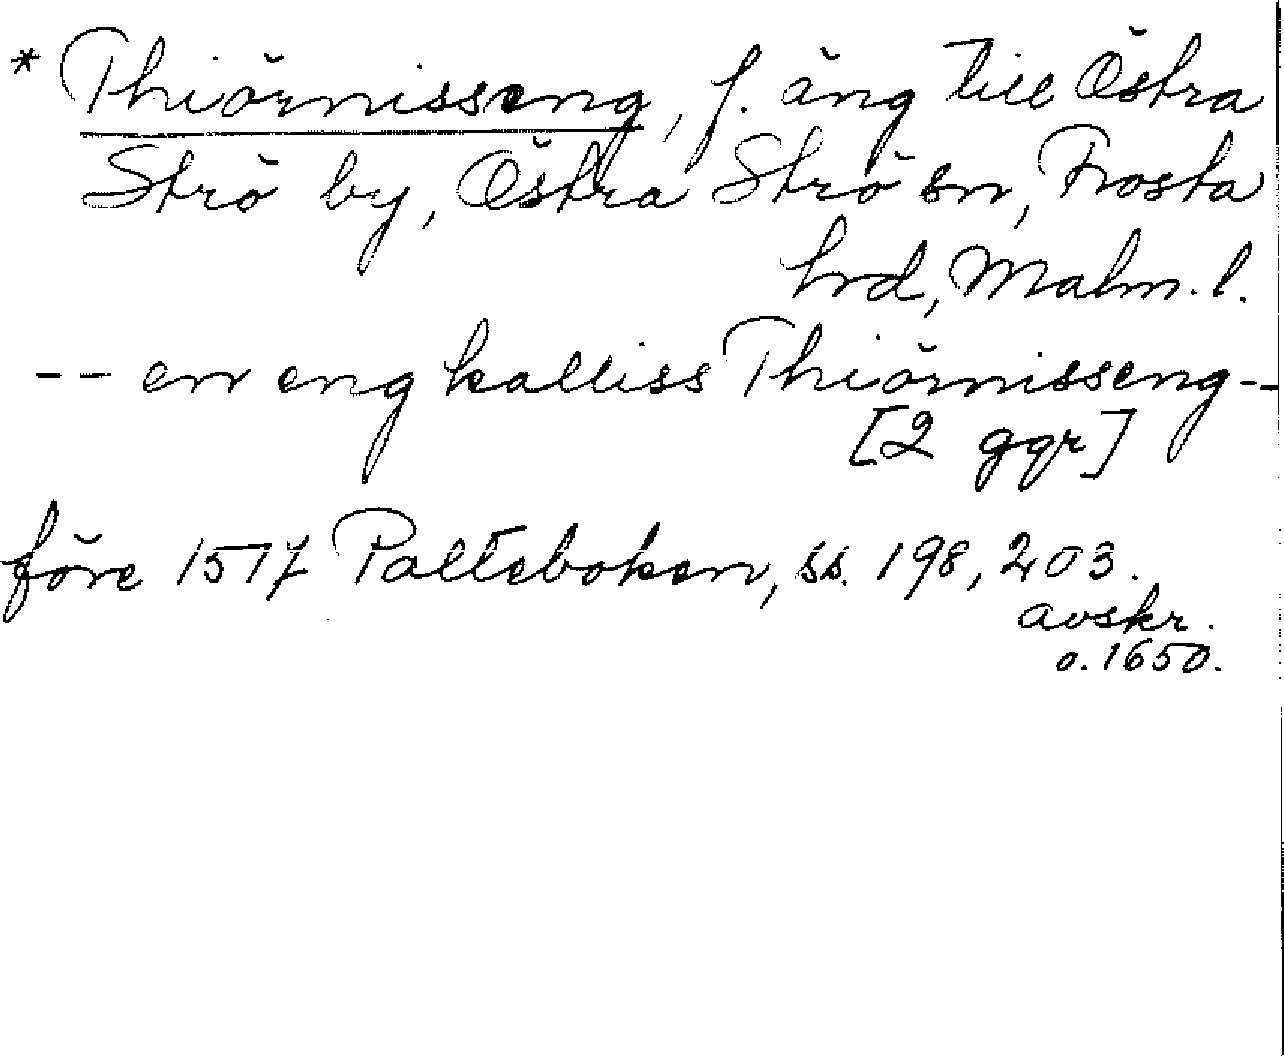 * Thiörnisseng, f. äng till Östra
Strö by, Östra Strö sn, Frosta
hrd, Malm. l.
-- en eng kalliss Thiörnisseng --
[2 ggr]
före 1517 Palteboken, ss. 198, 203.
avskr.
o. 1650.